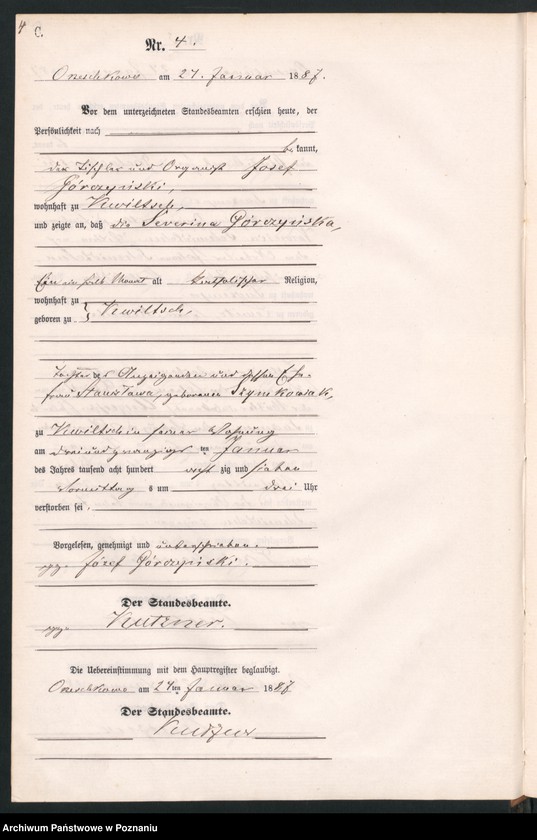 4 C.
Nr. 4.
Orzeschkowo am 24. Januar 1887.
Vor dem unterzeichneten Standesbeamten erschien heute, der
Persönlichkeit nach
bekannt,
der Tischler und Organist Josef
Górczyński,
wohnhaft zu Kwiltsch,
und zeigte an, daß die Severina Górczyńska,
Ein ein halb Monat alt katholischer Religion,
wohnhaft zu
geboren zu Kwiltsch,
Tochter des Anzeigenden und dessen Ehe-
frau Stanisława, geborenen Szymkowiak,
zu Kwiltsch in seiner Wohnung
am dreiundzwanzigsten Januar
des Jahres tausend acht hundert achtzig und sieben
Vormittags um drei Uhr
verstorben sei.
Vorgelesen, genehmigt und unterschrieben.
gez. Józef Górczyński.
Der Standesbeamte.
gez. Kutzner.
Die Uebereinstimmung mit dem Hauptregister beglaubigt.
Orzeschkowo am 24ten Januar 1887
Der Standesbeamte.
Kutzner
Archiwum Państwowe w Poznaniu